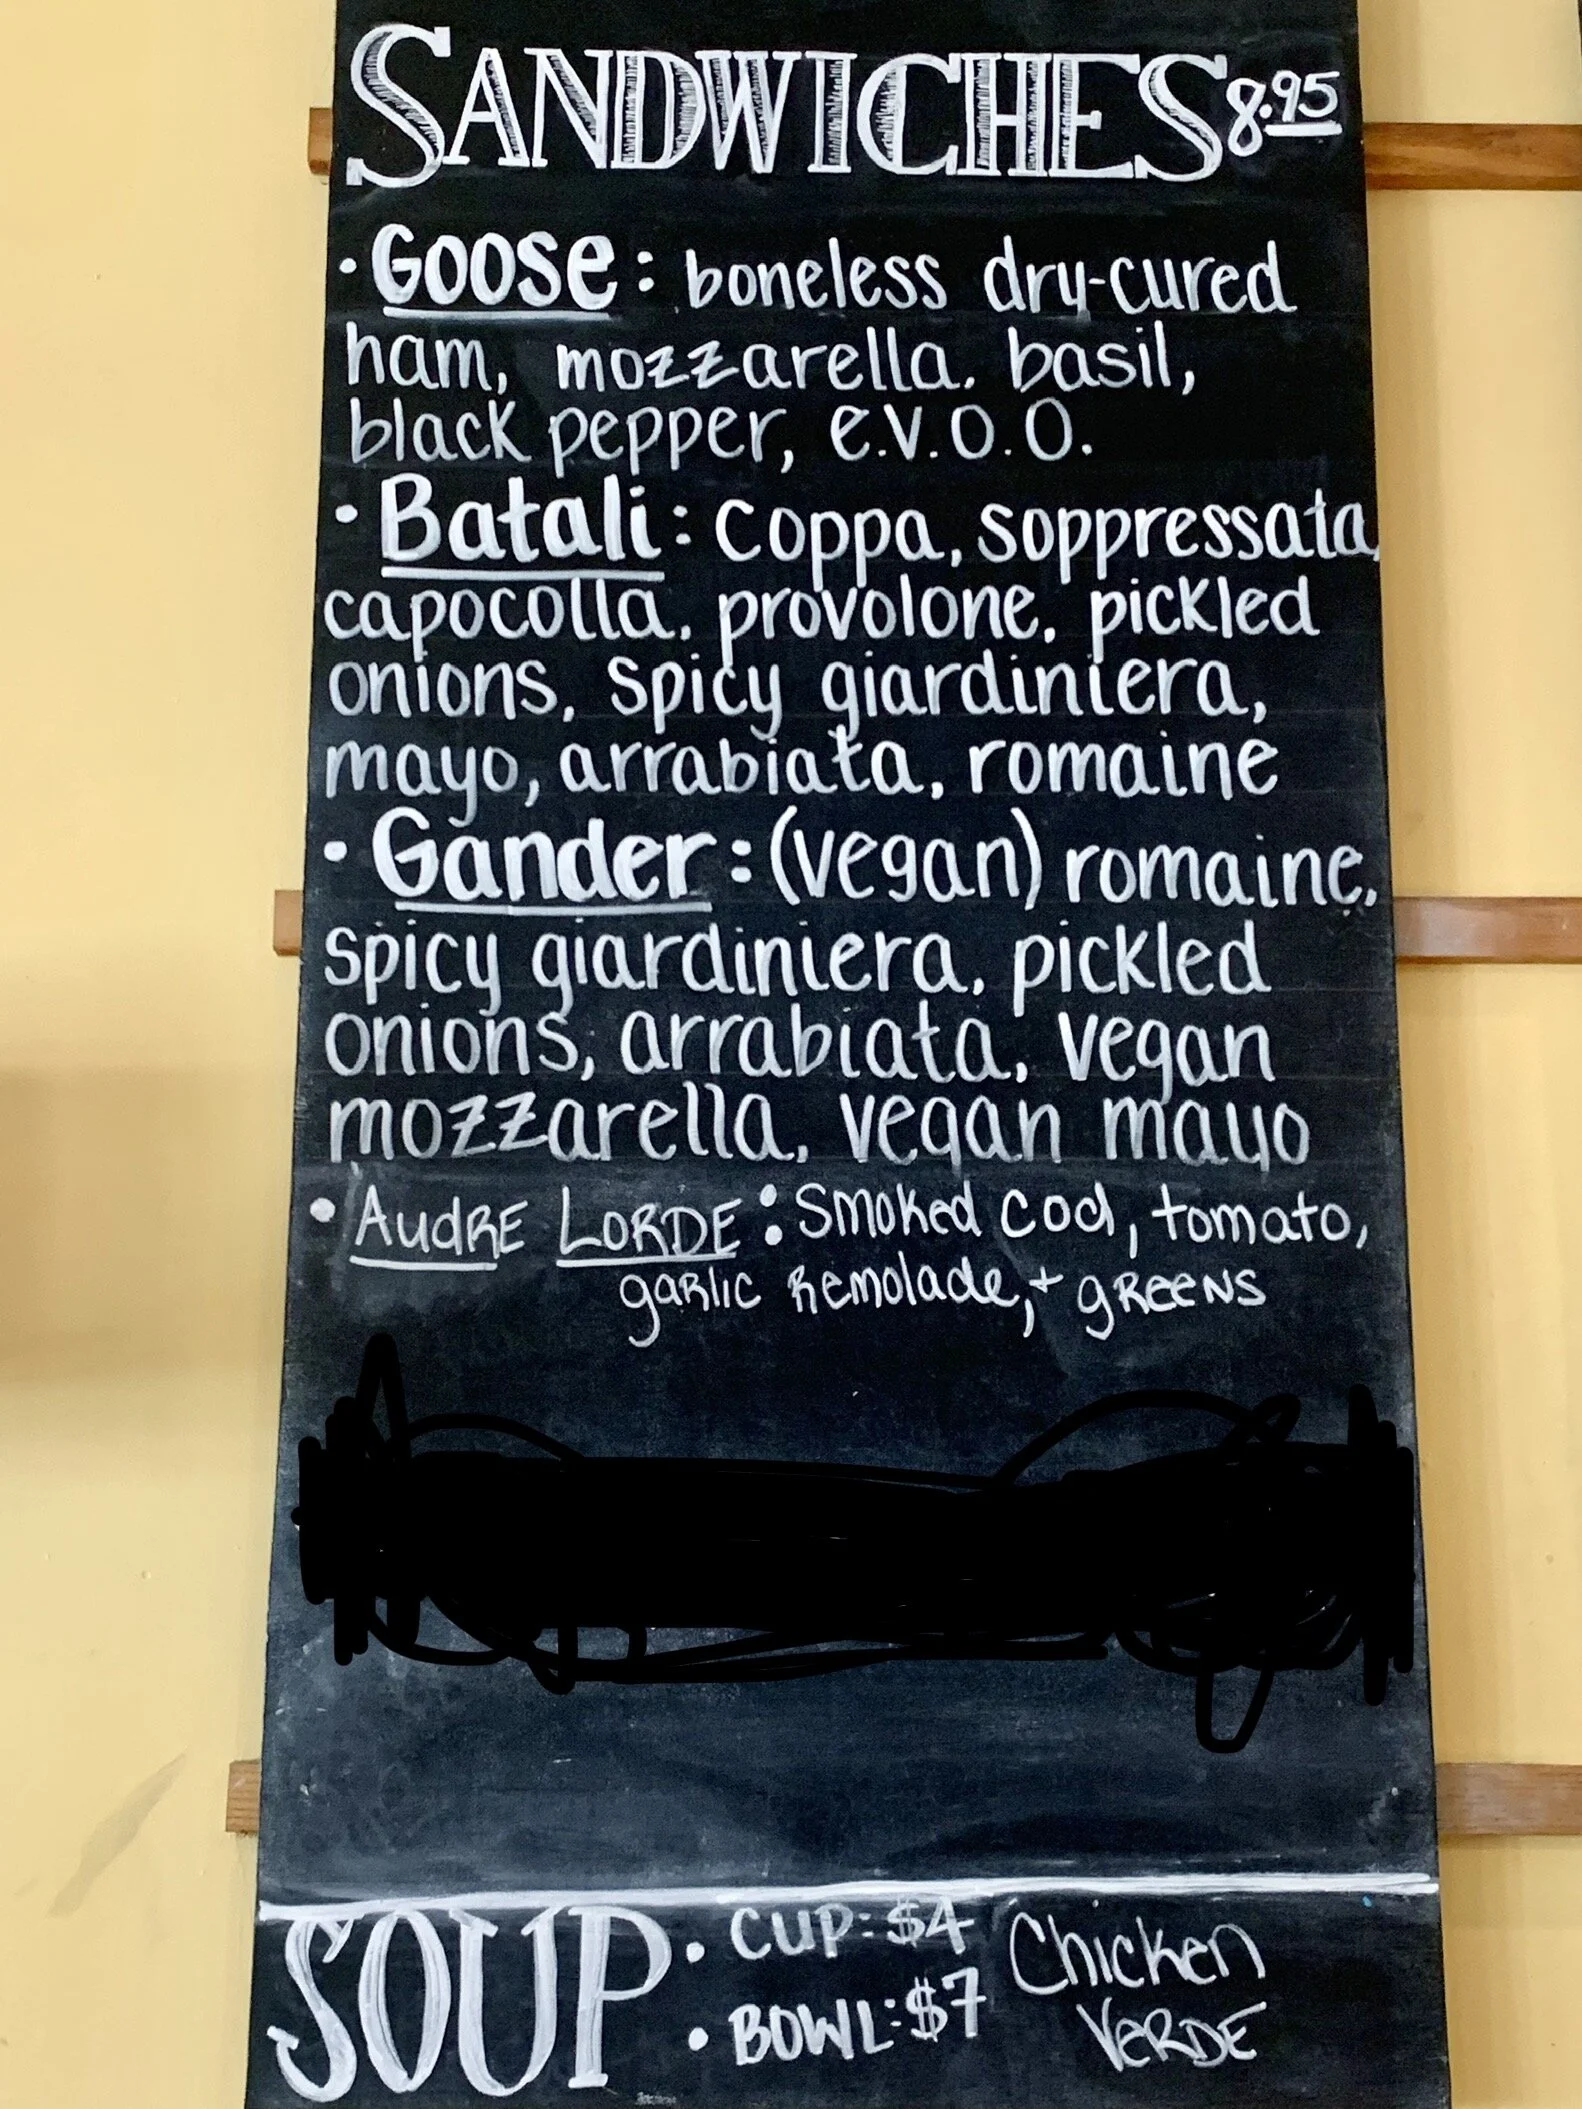 SANDWICHES 8.95
• Goose: boneless dry-cured
ham, mozzarella, basil,
black pepper, e.v.o.o.
• Batali: coppa, soppressata,
capocolla, provolone, pickled
onions, spicy giardiniera,
mayo, arrabiata, romaine
• Gander: (vegan) romaine,
spicy giardiniera, pickled
onions, arrabiata, vegan
mozzarella, vegan mayo
• AUDRE LORDE: Smoked cod, tomato,
garlic remolade, + greens
SOUP • CUP: $4 Chicken
• BOWL: $7 VERDE